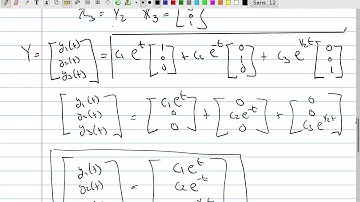 Sans 12
λ₃ = ½ x₃ = [0 0 1]
Y = [y₁(t) y₂(t) y₃(t)] = c₁ e^t [1 0 0] + c₂ e^-t [0 1 0] + c₃ e^½t [0 0 1]
[y₁(t) y₂(t) y₃(t)] = [c₁e^t 0 0] + [0 c₂e^-t 0] + [0 0 c₃e^½t]
[y₁(t) y₂(t) y₃(t)] = [c₁e^t c₂e^-t